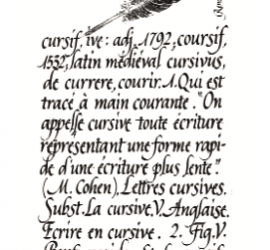 cursif, ive: adj. 1792, coursif,
1532, latin médiéval cursivus,
de currere, courir. 1. Qui est
tracé à main courante. "On
appelle cursive toute écriture
représentant une forme rapi-
de d'une écriture plus lente".
(M. Cohen), Lettres cursives.
Subst. La cursive. V. Anglaise.
Ecrire en cursive. 2. Fig. V.